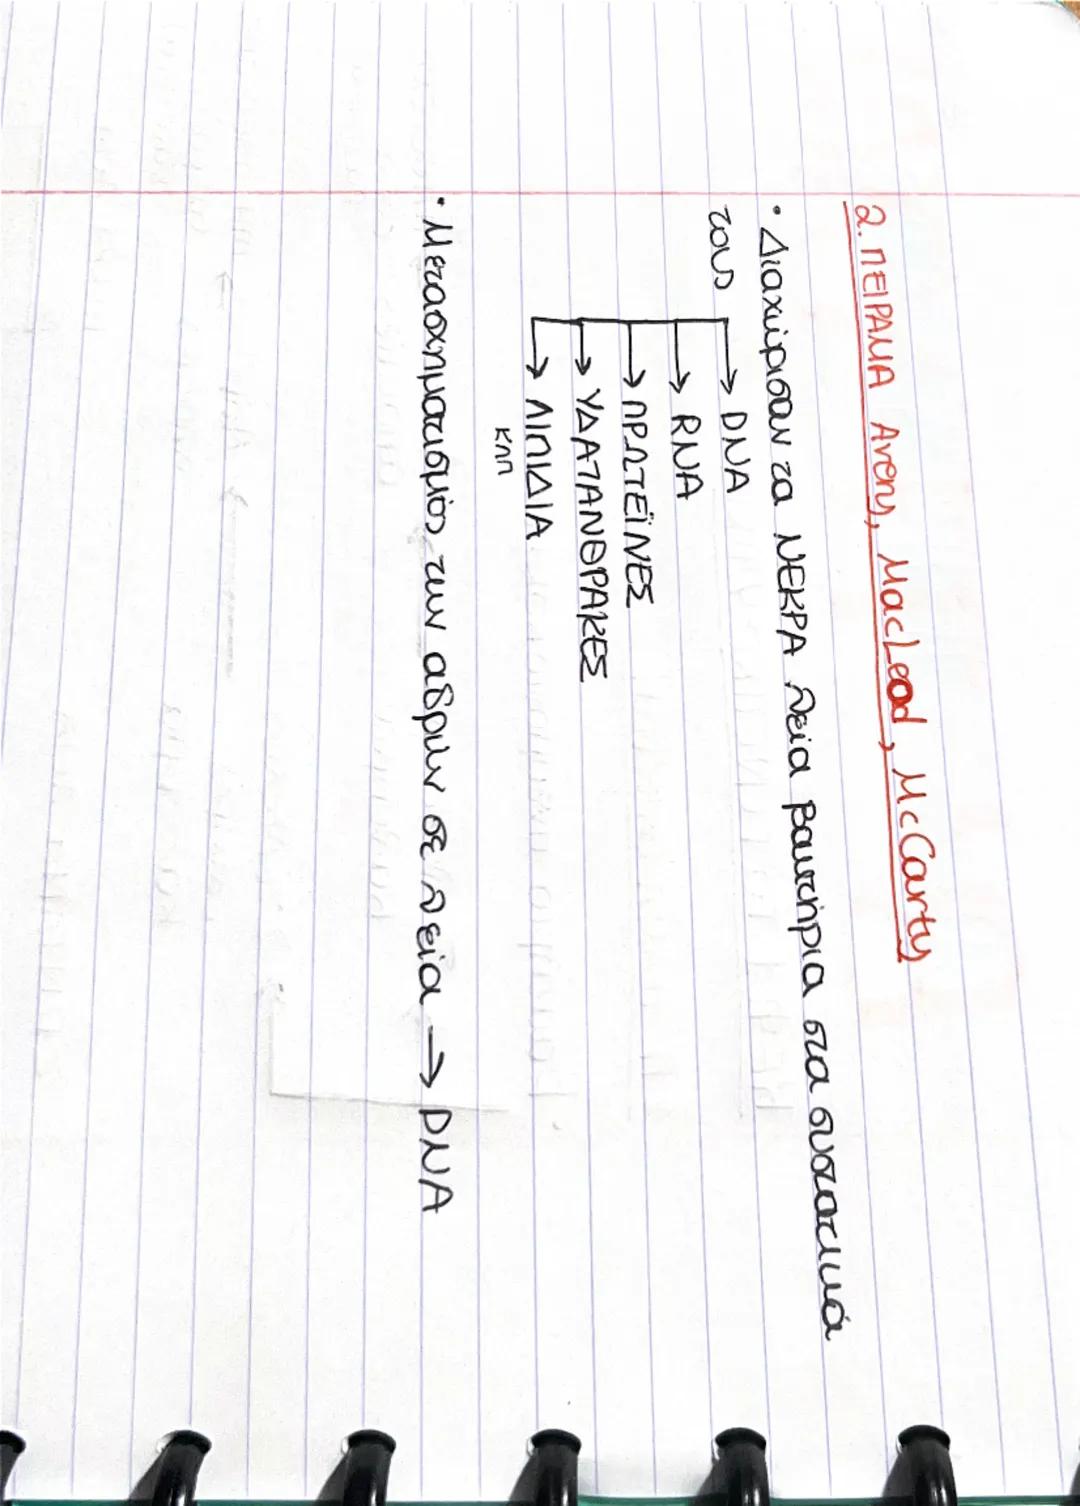 2. ΠΕΙΡΑΜΑ Avery, MacLeod, McCarty
• Διαχώρισαν τα ΝΕΚΡΑ λεία βακτήρια στα συστατικά
τους → DNA
→ RNA
→ ΠΡΩΤΕΪΝΕΣ
→ ΥΔΑΤΑΝΘΡΑΚΕΣ
→ ΛΙΠΙΔΙΑ
κλπ
• Μετασχηματισμός των αδρών σε λεία → DNA